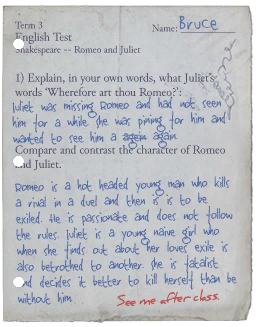 Term 3
Name: Bruce
English Test
Shakespeare -- Romeo and Juliet
1) Explain, in your own words, what Juliet's
words 'Wherefore art thou Romeo?':
Juliet was missing Romeo and had not seen
him for a while she was pining for him and
wanted to see him a again again.
Compare and contrast the character of Romeo
and Juliet.
Romeo is a hot headed young man who kills
a rival in a duel and then is is to be
exiled. He is passionate and does not follow
the rules. Juliet is a young naive girl who
when she finds out about her loves exile is
also betrothed to another. She is fatalist
and decides it better to kill herself than be
without him.
See me after class.